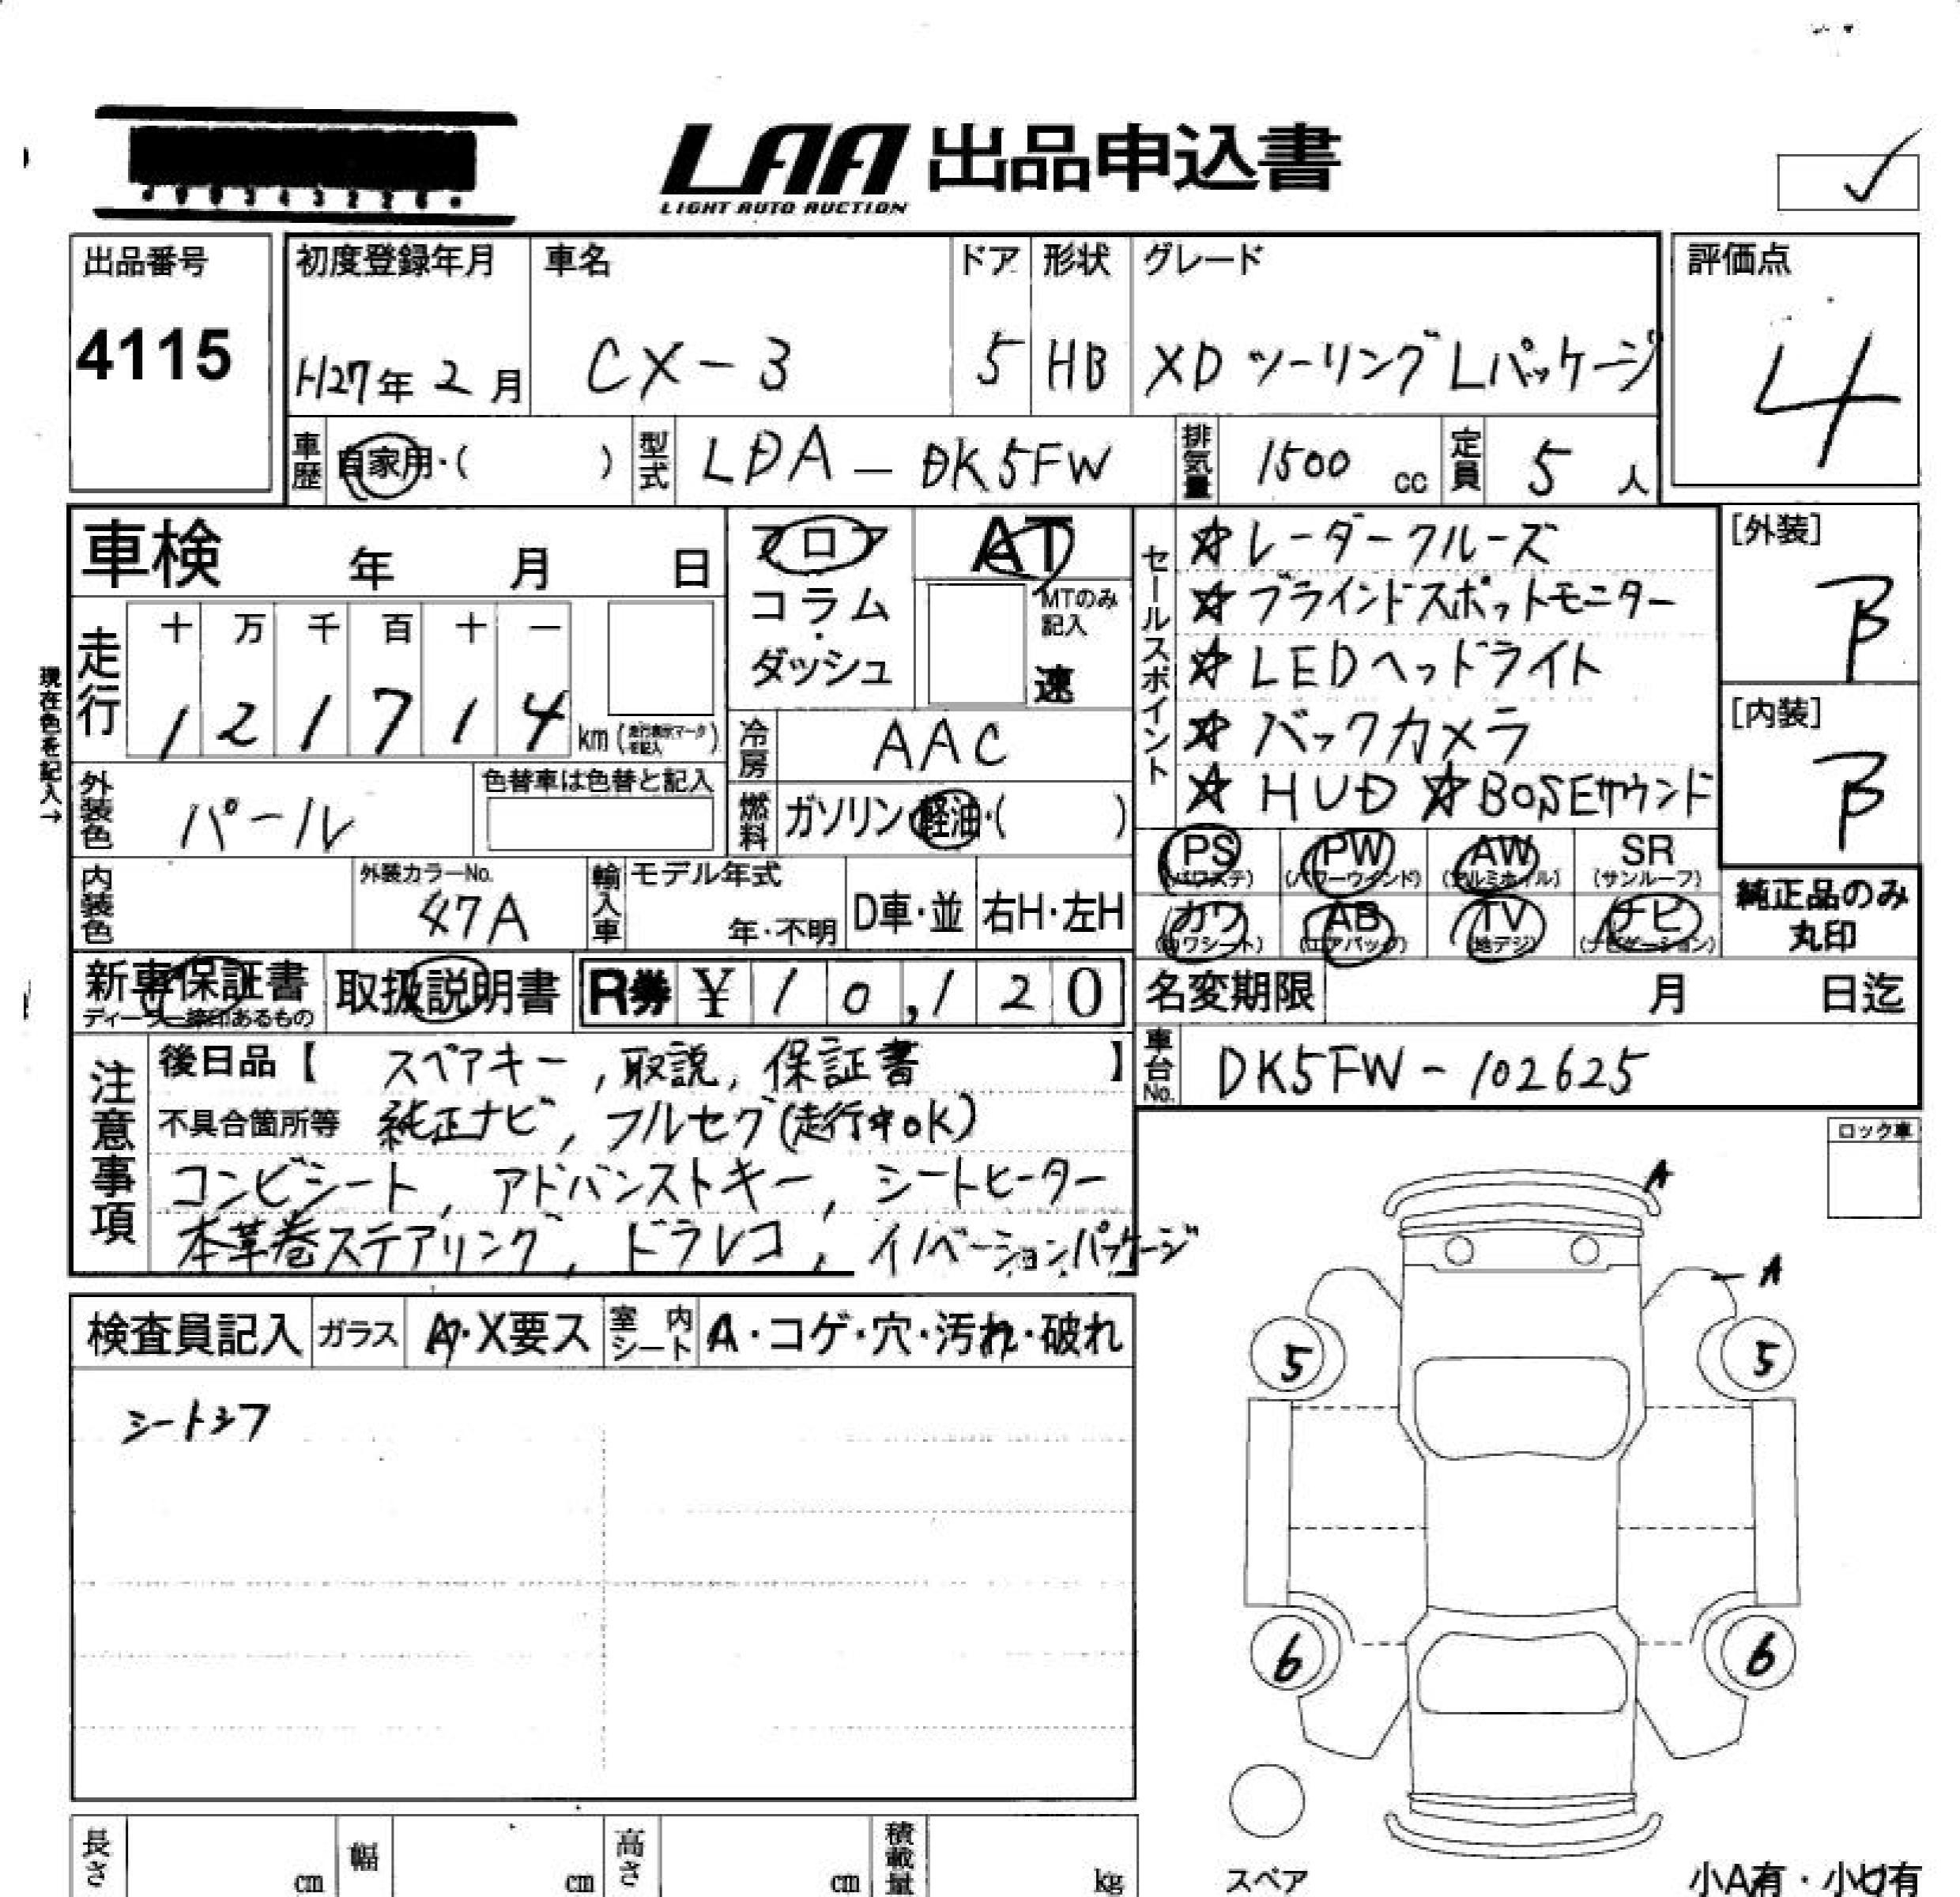 LAA 出品申込書
LIGHT AUTO AUCTION
出品番号
4115
初度登録年月
H27年 2月
車名
CX-3
ドア
5
形状
HB
グレード
XD ツーリング Lパッケージ
評価点
4
車歴
自家用・( )
型式
LDA-DK5FW
排気量
1500 cc
定員
5 人
車検 年 月 日
フロア
コラム・ダッシュ
AT
MTのみ記入
速
セールスポイント
☆レーダークルーズ
☆ブラインドスポットモニター
☆LEDヘッドライト
☆バックカメラ
☆HUD ☆BOSEサウンド
[外装]
B
[内装]
B
現在色を記入→
走行
十 万 千 百 十 一
1 2 1 7 1 4 km (走行表示マークを記入)
冷房
AAC
外装色
パール
色替車は色替と記入
燃料
ガソリン・軽油・( )
内装色
外装カラーNo.
47A
輸入車
モデル年式
年・不明
D車・並
右H・左H
PS (パワステ)
PW (パワーウインド)
AW (アルミホイル)
SR (サンルーフ)
カワ (カワシート)
AB (エアバッグ)
TV (地デジ)
ナビ (ナビゲーション)
純正品のみ
丸印
新車保証書
ディーラー締印あるもの
取扱説明書
R券 ¥10,120
名変期限 月 日迄
注意事項
後日品【 スペアキー, 取説, 保証書 】
不具合箇所等 純正ナビ, フルセグ(走行中OK)
コンビシート, アドバンストキー, シートヒーター
本革巻ステアリング, ドラレコ, イノベーションパッケージ
車台No.
DK5FW-102625
ロック車
検査員記入
ガラス
A・X要ス
室内シート
A・コゲ・穴・汚れ・破れ
シートシワ
A
A
5
5
6
6
スペア
小A有・小U有
長さ cm
幅 cm
高さ cm
積載量 kg